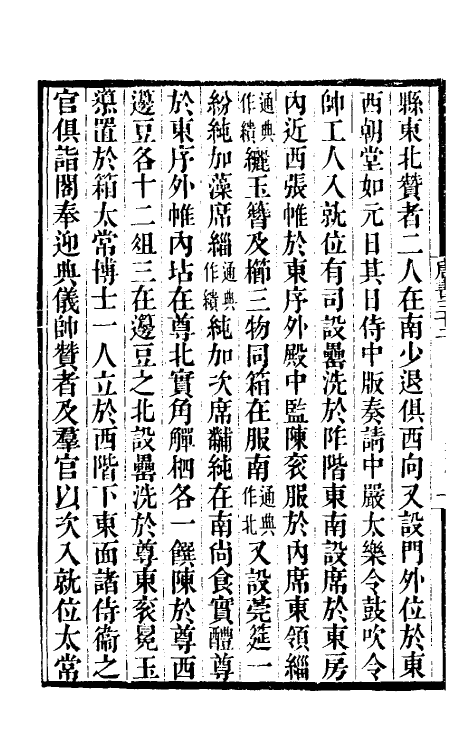 縣東北贊者二人在南少退俱西向又設門外位於東
西朝堂如元日其日侍中版奏請中嚴太樂令鼓吹令
帥工人入就位有司設罍洗於阼階東南設席於東房
內近西張帷於東序外殿中監陳衮服於內席東領緇
通典作纁纚玉簪及櫛三物同箱在服南通典作北又設莞筵一
紛純加藻席緇通典作繢純加次席黼純在南尚食實醴尊
於東序外帷內坫在尊北實角觶柶各一饌陳於尊西
籩豆各十二俎三在籩豆之北設罍洗於尊東衮冕玉
導置於箱太常博士一人立於西階下東面諸侍衞之
官俱詣閤奉迎典儀帥贊者及羣官以次入就位太常
唐書二十二